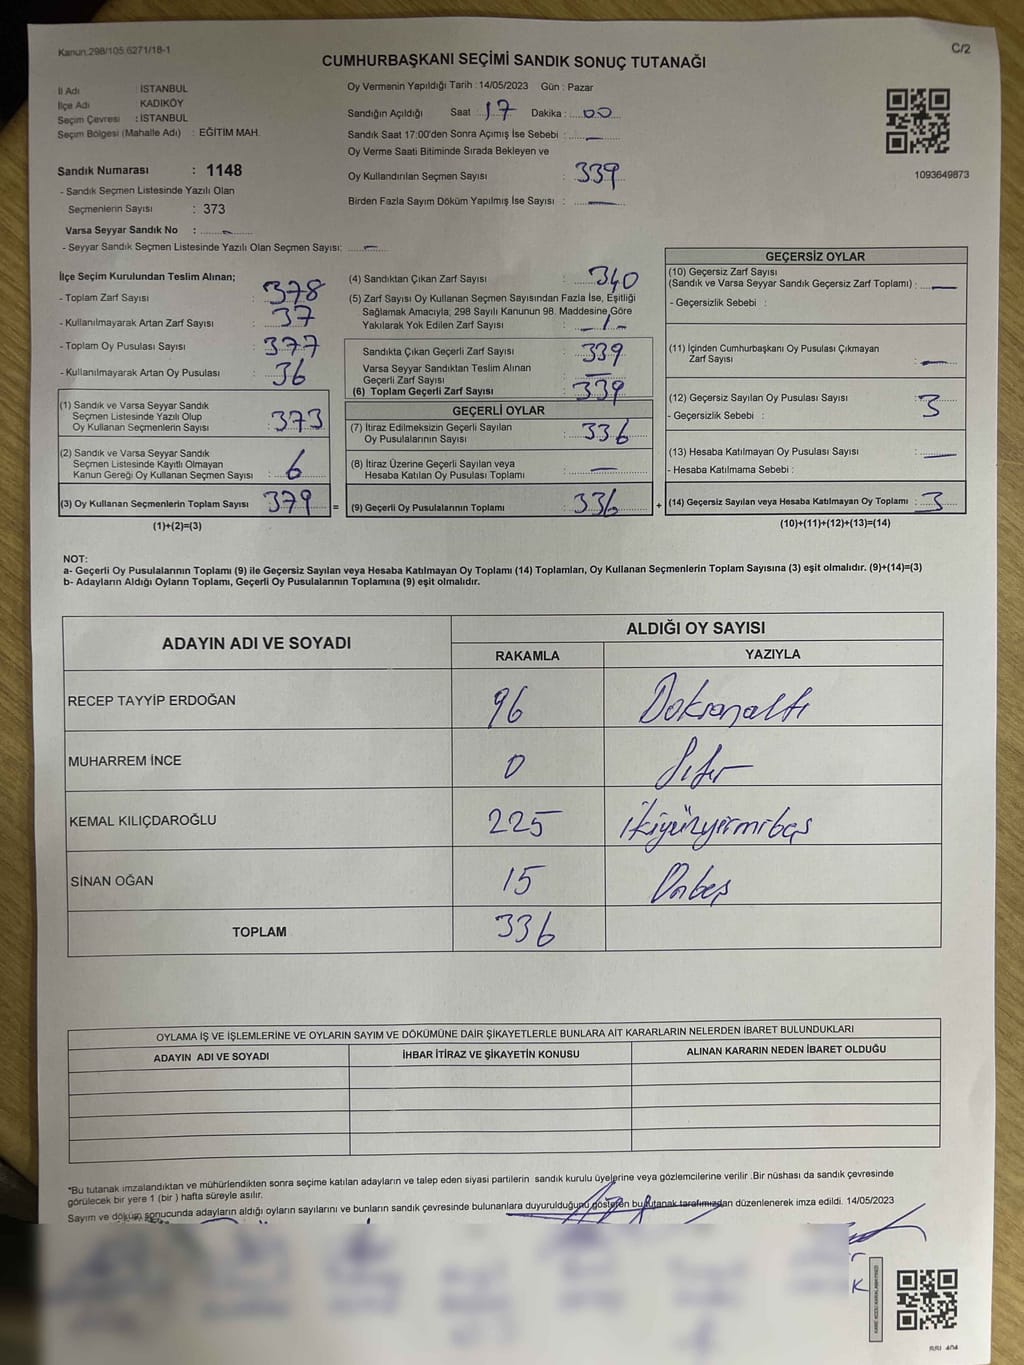 Kanun:298/105.6271/18-1
C/2
CUMHURBAŞKANI SEÇİMİ SANDIK SONUÇ TUTANAĞI
İl Adı : İSTANBUL
İlçe Adı KADIKÖY
Seçim Çevresi : İSTANBUL
Seçim Bölgesi (Mahalle Adı) : EĞİTİM MAH.
Oy Vermenin Yapıldığı Tarih : 14/05/2023 Gün : Pazar
Sandığın Açıldığı Saat : 17 Dakika : 00
Sandık Saat 17:00'den Sonra Açımış İse Sebebi : —
Oy Verme Saati Bitiminde Sırada Bekleyen ve
Oy Kullandırılan Seçmen Sayısı : 339
Birden Fazla Sayım Döküm Yapılmış İse Sayısı : —
1093649873
Sandık Numarası : 1148
- Sandık Seçmen Listesinde Yazılı Olan
Seçmenlerin Sayısı : 373
Varsa Seyyar Sandık No : —
- Seyyar Sandık Seçmen Listesinde Yazılı Olan Seçmen Sayısı: —
İlçe Seçim Kurulundan Teslim Alınan;
- Toplam Zarf Sayısı : 378
- Kullanılmayarak Artan Zarf Sayısı : 37
- Toplam Oy Pusulası Sayısı : 377
- Kullanılmayarak Artan Oy Pusulası : 36
(1) Sandık ve Varsa Seyyar Sandık
Seçmen Listesinde Yazılı Olup
Oy Kullanan Seçmenlerin Sayısı : 373
(2) Sandık ve Varsa Seyyar Sandık
Seçmen Listesinde Kayıtlı Olmayan
Kanun Gereği Oy Kullanan Seçmen Sayısı : 6
(3) Oy Kullanan Seçmenlerin Toplam Sayısı : 379
(1)+(2)=(3)
=
(4) Sandıktan Çıkan Zarf Sayısı : 340
(5) Zarf Sayısı Oy Kullanan Seçmen Sayısından Fazla İse, Eşitliği
Sağlamak Amacıyla, 298 Sayılı Kanunun 98. Maddesine Göre
Yakılarak Yok Edilen Zarf Sayısı : -1-
Sandıkta Çıkan Geçerli Zarf Sayısı : 339
Varsa Seyyar Sandıktan Teslim Alınan
Geçerli Zarf Sayısı : —
(6) Toplam Geçerli Zarf Sayısı : 339
GEÇERLİ OYLAR
(7) İtiraz Edilmeksizin Geçerli Sayılan
Oy Pusulalarının Sayısı : 336
(8) İtiraz Üzerine Geçerli Sayılan veya
Hesaba Katılan Oy Pusulası Toplamı : —
(9) Geçerli Oy Pusulalarının Toplamı : 336
+
GEÇERSİZ OYLAR
(10) Geçersiz Zarf Sayısı
(Sandık ve Varsa Seyyar Sandık Geçersiz Zarf Toplamı) : —
- Geçersizlik Sebebi :
(11) İçinden Cumhurbaşkanı Oy Pusulası Çıkmayan
Zarf Sayısı : —
(12) Geçersiz Sayılan Oy Pusulası Sayısı : 3
- Geçersizlik Sebebi :
(13) Hesaba Katılmayan Oy Pusulası Sayısı : —
- Hesaba Katılmama Sebebi :
(14) Geçersiz Sayılan veya Hesaba Katılmayan Oy Toplamı : 3
(10)+(11)+(12)+(13)=(14)
NOT:
a- Geçerli Oy Pusulalarının Toplamı (9) ile Geçersiz Sayılan veya Hesaba Katılmayan Oy Toplamı (14) Toplamları, Oy Kullanan Seçmenlerin Toplam Sayısına (3) eşit olmalıdır. (9)+(14)=(3)
b- Adayların Aldığı Oyların Toplamı, Geçerli Oy Pusulalarının Toplamına (9) eşit olmalıdır.
ADAYIN ADI VE SOYADI
ALDIĞI OY SAYISI
RAKAMLA
YAZIYLA
RECEP TAYYİP ERDOĞAN 96 Doksanaltı
MUHARREM İNCE 0 Sıfır
KEMAL KILIÇDAROĞLU 225 ikiyüzyirmibeş
SİNAN OĞAN 15 Onbeş
TOPLAM 336
OYLAMA İŞ VE İŞLEMLERİNE VE OYLARIN SAYIM VE DÖKÜMÜNE DAİR ŞİKAYETLERLE BUNLARA AİT KARARLARIN NELERDEN İBARET BULUNDUKLARI
ADAYIN ADI VE SOYADI
İHBAR İTİRAZ VE ŞİKAYETİN KONUSU
ALINAN KARARIN NEDEN İBARET OLDUĞU
*Bu tutanak imzalandıktan ve mühürlendikten sonra seçime katılan adayların ve talep eden siyasi partilerin sandık kurulu üyelerine veya gözlemcilerine verilir .Bir nüshası da sandık çevresinde
görülecek bir yere 1 (bir ) hafta süreyle asılır.
Sayım ve döküm sonucunda adayların aldığı oyların sayılarını ve bunların sandık çevresinde bulunanlara duyurulduğunu gösteren bu tutanak tarafımızdan düzenlenerek imza edildi. 14/05/2023
K